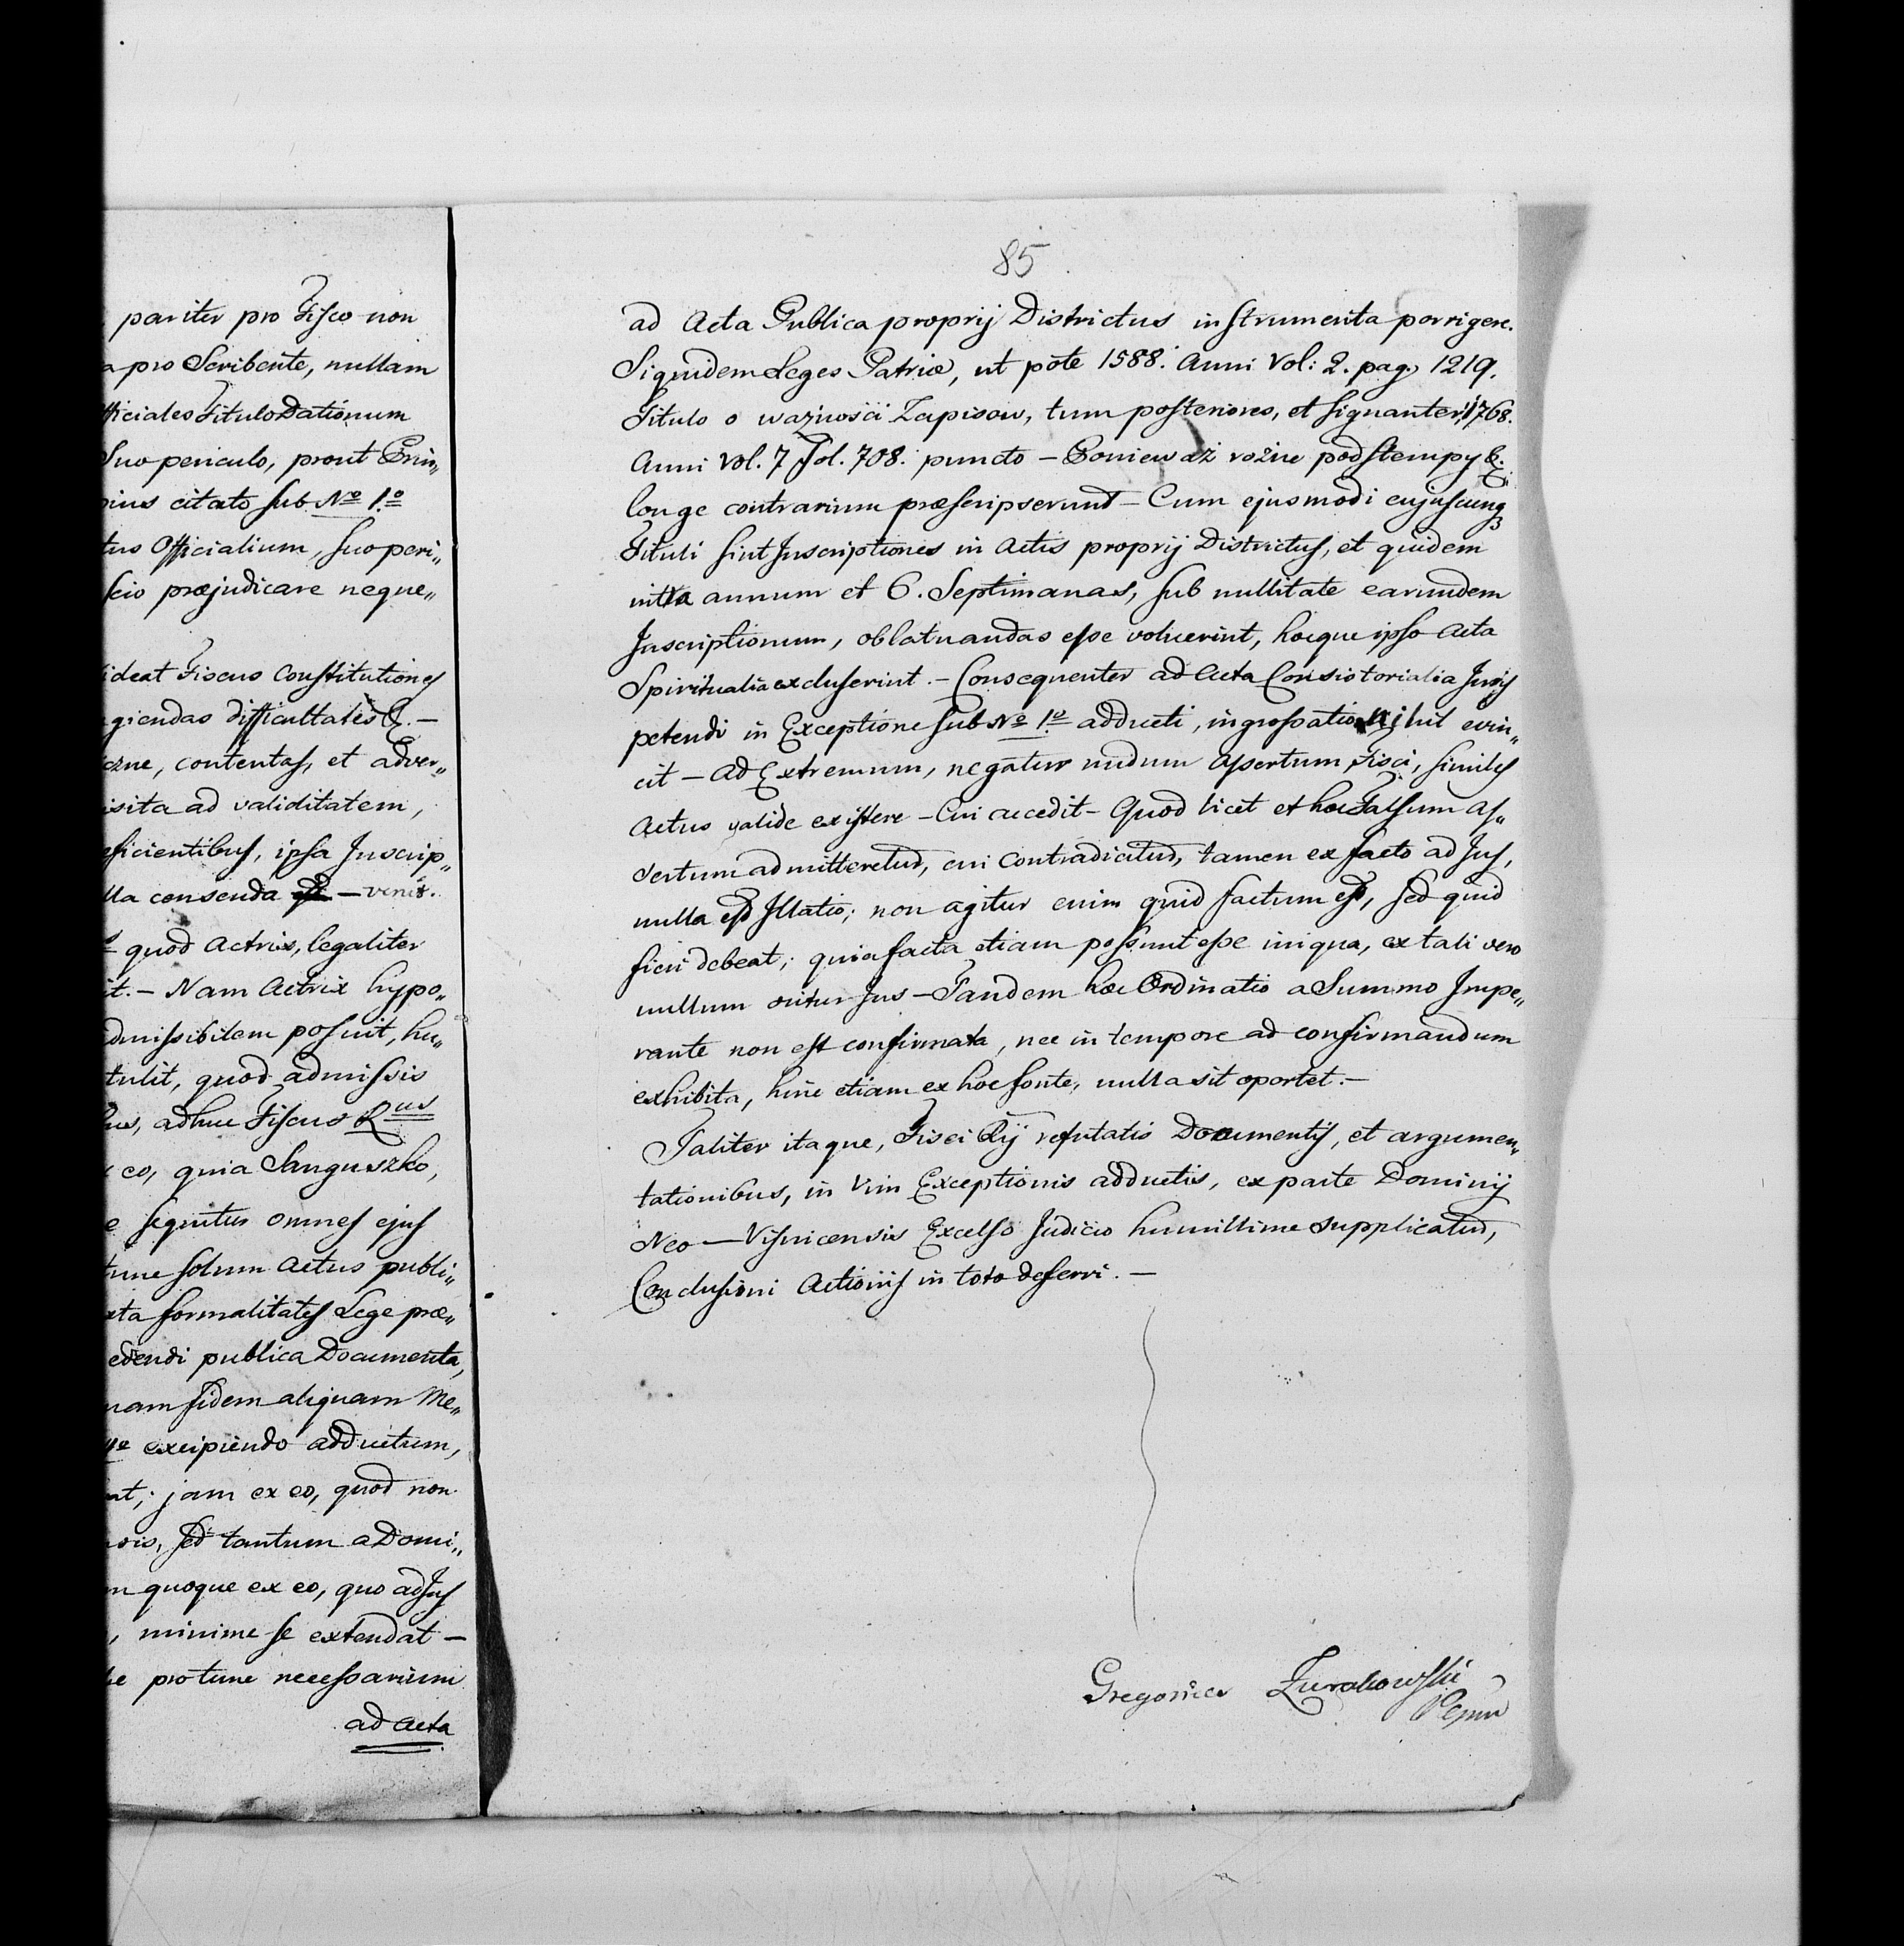 pariter pro Fisco non
pro Scribente, nullam
fficiales Titulo Dationum
Suo periculo, prout Prin„
pius citato sub No 1o
tus Officialium, suo peri„
præjudicare neque„
ideat Fiscus Constitutiones
giendas difficultates &. —
czne, contentas, et adver„
isita ad validitatem,
eficientibus, ipsa Inscrip„
lla censenda — venit.
quod Actrix, legaliter
it. — Nam Actrix hypo„
dmissibilem posuit, hu„
tulit, quod admissis
adhuc Fiscus Rus
eo, quia Sanguszko,
sequitur omnes ejus
tunc solum Actus publi„
xta formalitates Lege præ„
edendi publica Documenta,
nam fidem aliquam me„
excipiendo adductum,
nt; jam ex eo, quod non
sed tantum a Domi„
m quoque ex eo, quo ad Jus
, minime se extendat —
pro tunc necessarium
ad acta
85
ad Acta Publica proprij Districtus instrumenta porrigere.
Siquidem Leges Patriæ, ut pote 1588. Anni Vol: 2. pag. 1219.
Titulo o ważnośći Zapisow, tum posteriores, et signanter 1768.
Anni Vol. 7 Fol. 708. puncto — Ponieważ rożne podstempy &.
longe contrarium præscripserunt — Cum ejusmodi cujuscunq
Tituli sint Inscriptiones in Actis proprij Districtus, et quidem
intra annum et 6. Septimanas, sub nullitate earundem
Inscriptionum, oblatuandas esse voluerint, hocque ipso Acta
Spiritualia excluserint. — Consequenter ad Acta Consistorialia Juris
petendi in Exceptione sub No 1o adducti, ingrossatio nihil evin„
cit — Ad Extremum, negatur nudum assertum Fisci, similes
Actus valide existere — Cui accedit — Quod licet et hoc Falsum as„
sertum admitteretur, cui contradicitur, tamen ex facto ad Jus,
nulla est Illatio; non agitur enim quid factum est, sed quid
fieri debeat; quia facta etiam possunt esse iniqua, ex tali vero
nullum oritur Jus — Tandem hæc Ordinatio a Summo Impe„
rante non est confirmata, nec in tempore ad confirmandum
exhibita, hinc etiam ex hoc fonte, nulla sit oportet. —
Taliter itaque, Fisci Rij refutatis Documentis, et argumen„
tationibus, in vim Exceptionis adductis, ex parte Dominij
Neo — Visnicensis Excelso Judicio humillime supplicatur,
Conclusioni Actionis in toto deferri. —
Gregorius Zurakowski